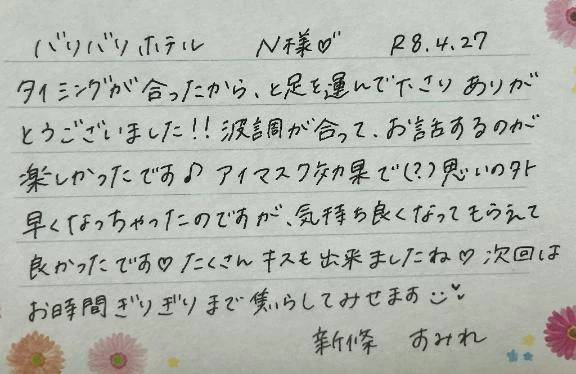 バリバリホテル　N様♡　R8.4.27
タイミングが合ったから、と足を運んで下さりありが
とうございました!! 波調が合って、お話するのが
楽しかったです♪ アイマスク効果で(?)思いの外
早くなっちゃったのですが、気持ち良くなってもらえて
良かったです♡ たくさんキスも出来ましたね♡ 次回は
お時間ぎりぎりまで焦らしてみせます
新條　すみれ